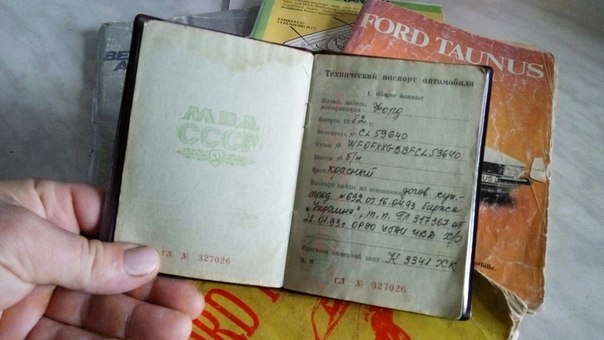 FORD TAUNUS
МВД
СССР
ГЛ № 327026
Технический паспорт автомобиля
I. Общие данные
Марка, модель,
модификация Форд
Выпуск 1982 г.
Двигатель № CL59640
Кузов № WF0FXXGBBFCL59640
Шасси № б/н
Цвет красный
Паспорт выдан на основании догов. куп-
прод № 692 от 16.04.93 биржа
"Украина", т.п.
от
28.01.93г.
Красного номерной знак
№ Н 9341 ХК
ГЛ № 327026
FORD